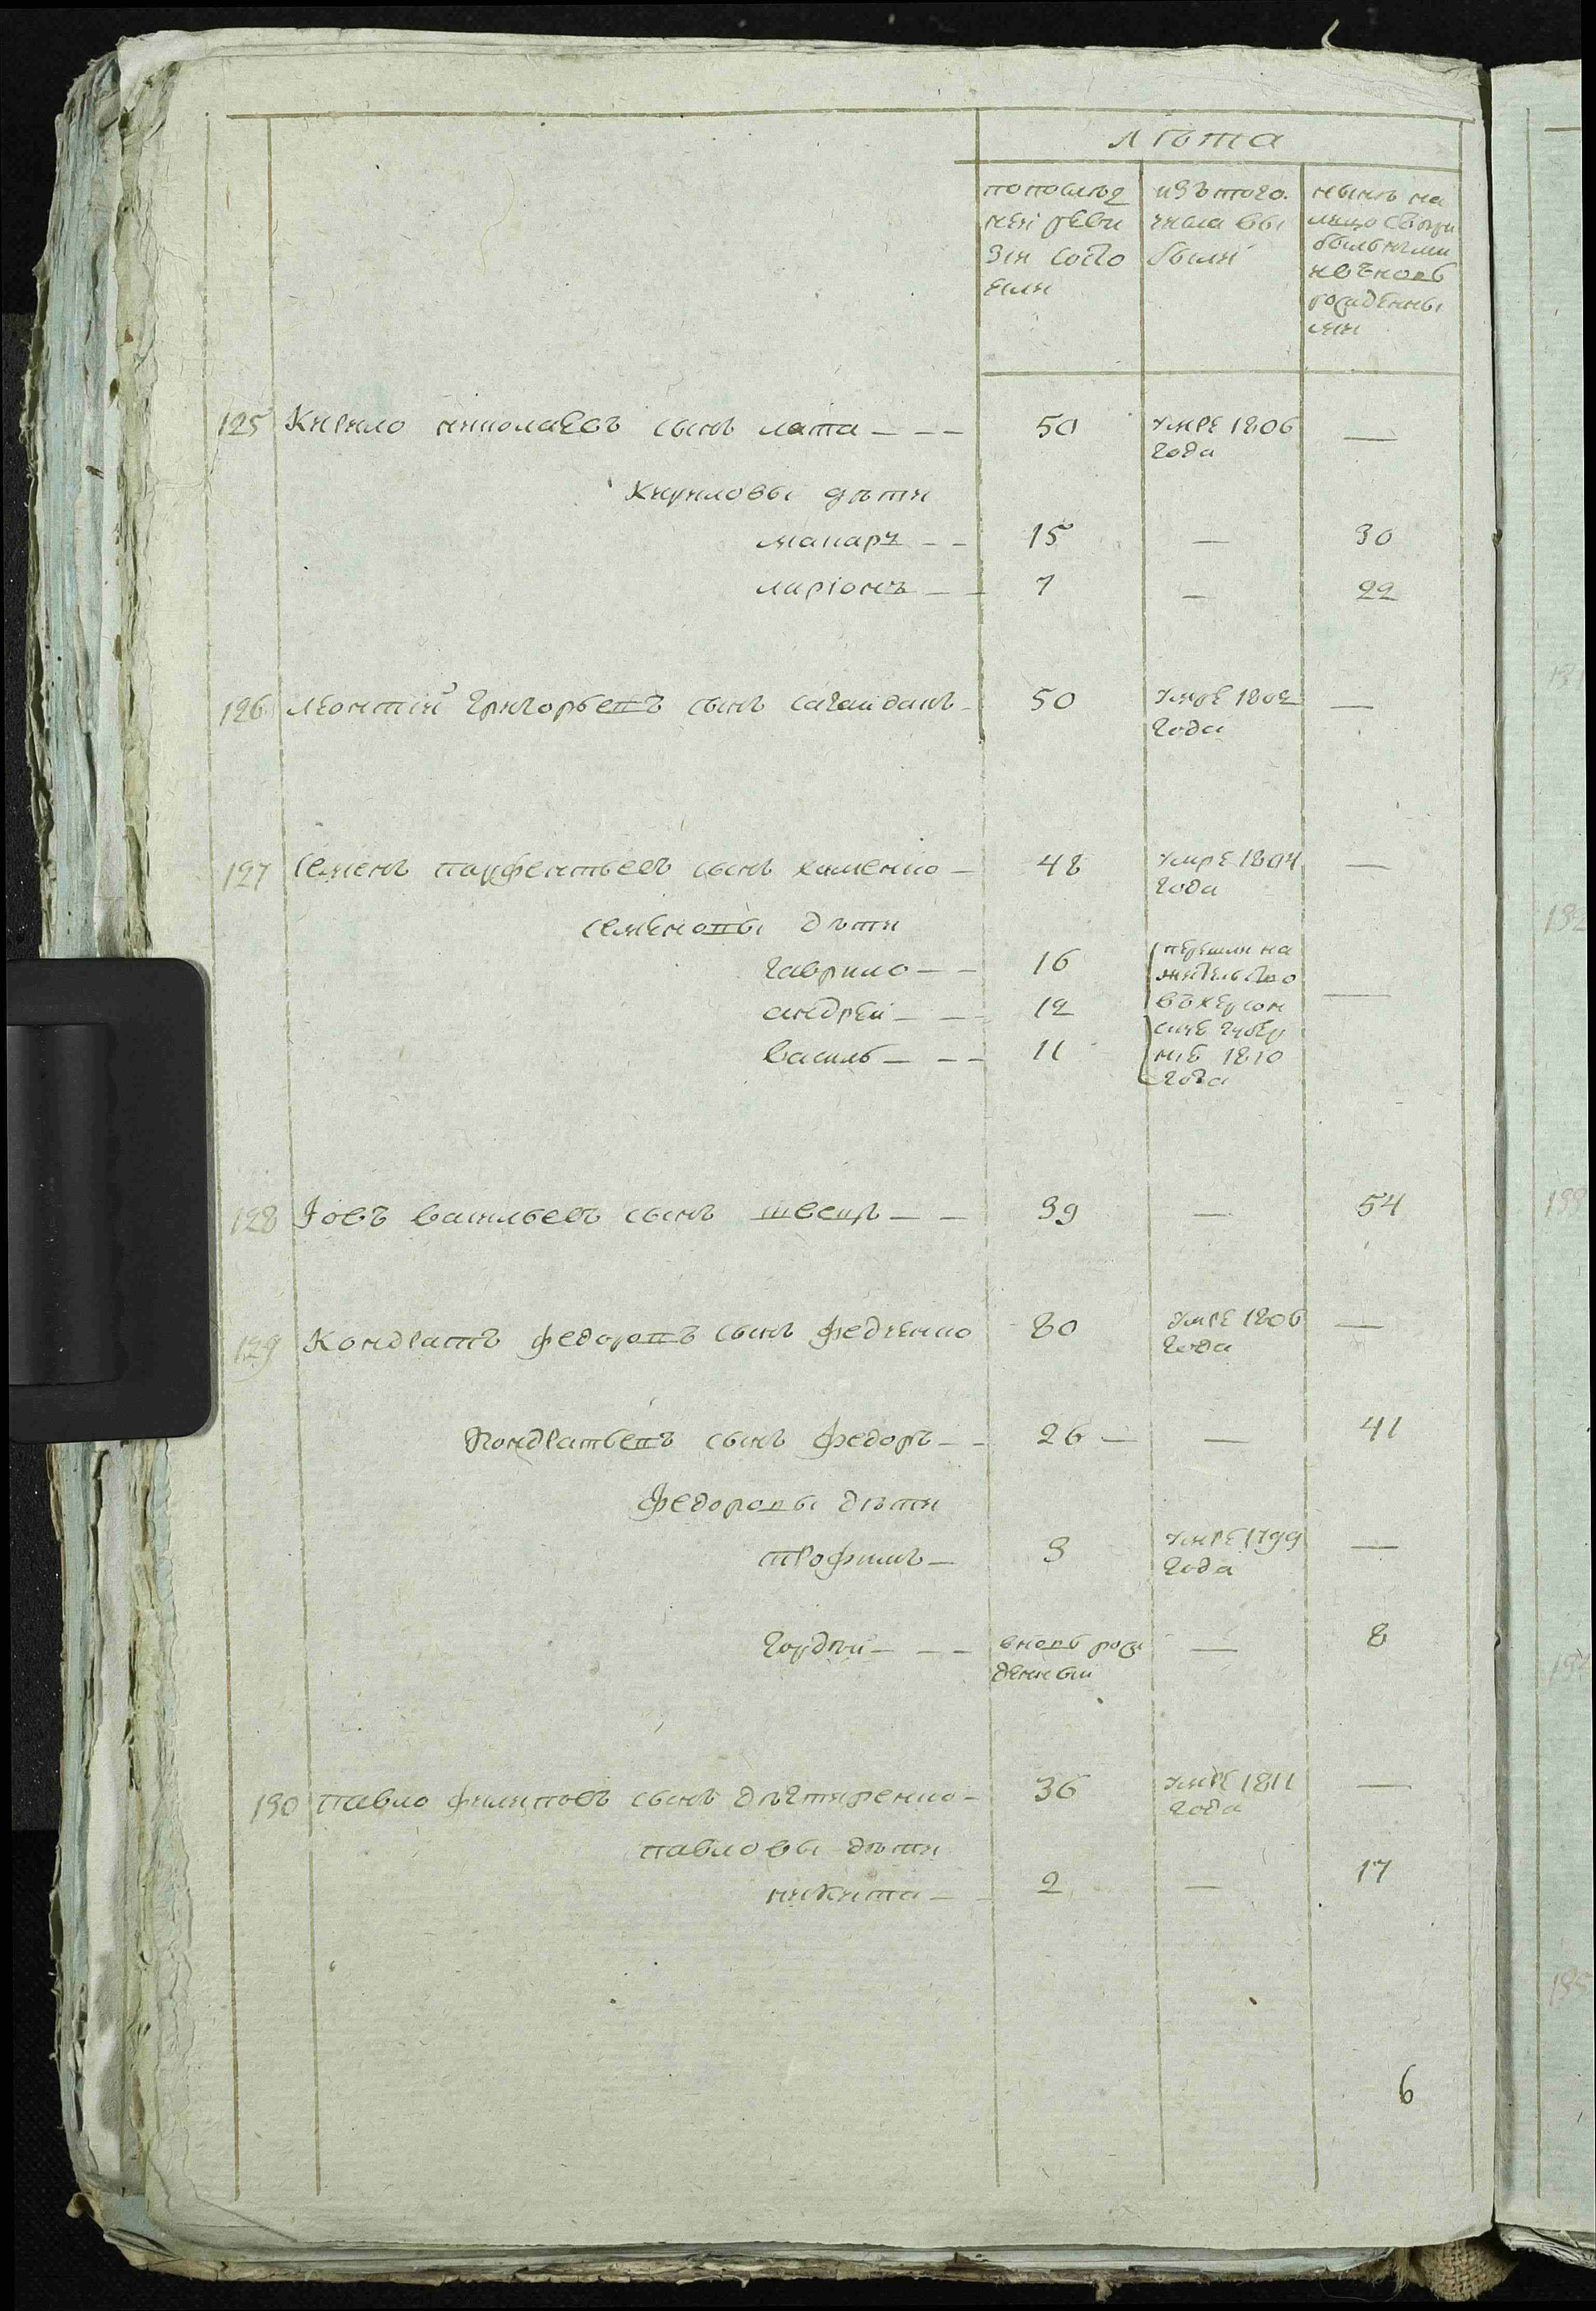 лѣта
по послѣд
ней реви
зіи состо
яли
изъ того
числа вы
были
нынѣ на
лицо съ при
былыми
и вновь
рожденны
ми
125 Кирило николаевъ сынъ лата — — — 50 умре 1806 —
года
Кириловы дѣти
макаръ — — 15 — 30
ларіонъ — — 7 — 22
126 леонтій григорьевъ сынъ сагайдакъ 50 умре 1802 —
года
127 Семенъ парфентьевъ сынъ хименко — 48 умре 1804 —
года
семеновы дѣти
гаврило — — 16 перешли на
жительство
андрей — — 12 въ херсон —
ские губер
василь — — — 11 ніе 1810
года
128 Іовъ васильевъ сынъ швецъ — — 39 — 54
129 Кондратъ федоровъ сынъ федченко 80 умре 1806 —
года
Кондратьевъ сынъ федоръ — — 26 — — 41
федоровы дѣти
трофимъ — 3 умре 1799 —
года
гордѣй — — — вновь рож — 8
денный
130 павло филиповъ сынъ дѣгтяренко — 36 умре 1811 —
года
павловы дѣти
никита — — 2 — 17
6